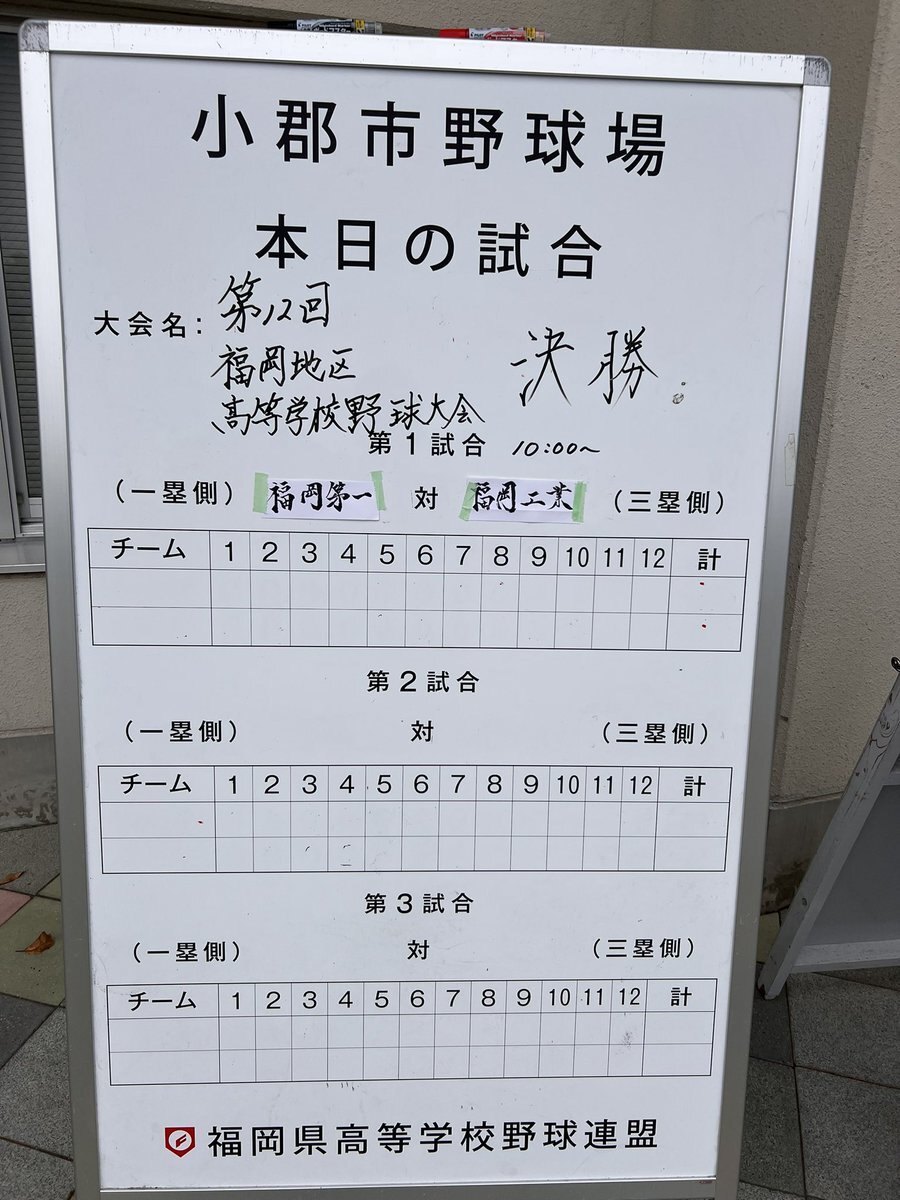 小郡市野球場
本日の試合
大会名：第12回
福岡地区
高等学校野球大会
決勝
第1試合 10:00〜
（一塁側） 福岡第一 対 福岡工業 （三塁側）
チーム 1 2 3 4 5 6 7 8 9 10 11 12 計
第2試合
（一塁側） 対 （三塁側）
チーム 1 2 3 4 5 6 7 8 9 10 11 12 計
第3試合
（一塁側） 対 （三塁側）
チーム 1 2 3 4 5 6 7 8 9 10 11 12 計
福岡県高等学校野球連盟